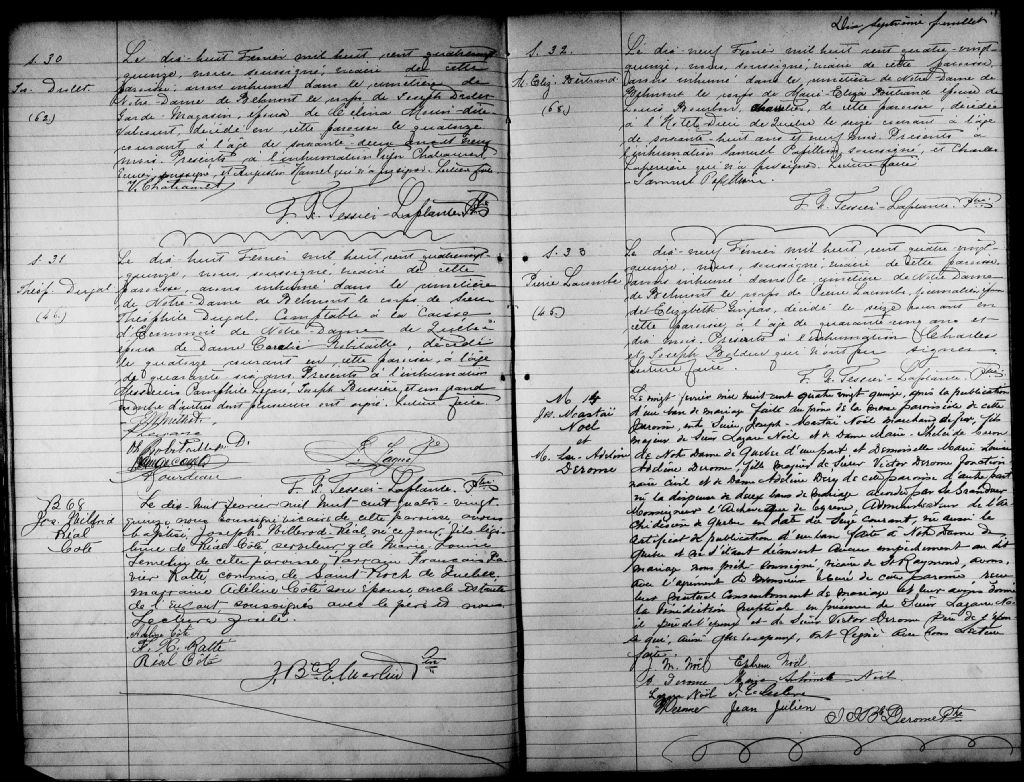 S. 30
Jos. Drolet
(62)
Le dix-huit Février mil huit cent quatrevingt
quinze, nous soussigné, vicaire de cette
paroisse, avons inhumé dans le cimetière de
Notre-Dame de Belmont le corps de Joseph Drolet
Garde-Magasin, époux de Célina Morin-dite-
Valcourt, décédé en cette paroisse le quatorze
courant à l'âge de soixante-deux ans et
mois. Présents à l'inhumation Chateauvert
soussigné, et Augustin Hamel qui n'a pu signer. Lecture faite
F. X. Tessier-Laplante. Ptre
S. 31
Théop. Dugal
(46)
Le dix-huit Février mil huit cent quatrevingt-
quinze, nous, soussigné, vicaire de cette
paroisse, avons inhumé dans le cimetière
de Notre-Dame de Belmont le corps de Sieur
Théophile Dugal. Comptable à la Caisse
d'Economie de Notre-Dame de Québec
époux de Dame Robitaille, décédé
le quatorze courant en cette paroisse, à l'âge
de quarante six ans. Présents à l'inhumation
Messieurs Pamphile Légaré, Joseph Bussière, et un grand
nombre d'autres dont plusieurs ont signé. Lecture faite
Robitaille
F. X. Tessier-Laplante. Ptre
B 68
Jos. Wilfrod
Réal
Coté
Le dix-huit février mil huit cent quatre-vingt
quinze nous soussigné vicaire de cette paroisse avons
baptisé Joseph-Wilbrod-Réal né ce jour, fils légi-
time de Réal Coté serviteur, & de Marie-Louise
de cette paroisse, Parrain François-Xa
vier Ratté, commis, de Saint Roch de Québec,
marraine Adéline Coté son épouse oncle et tante
de l'enfant soussignés avec le père et nous
Lecture faite.
Adeline Coté
F. X. Ratté
Réal Coté
J. Bte E. Martin Ptre
Dix septième feuillet
S. 32.
M. Eliz. Bertrand
(68)
Le dix-neuf Février mil huit cent quatre-vingt-
quinze, nous, soussigné, vicaire de cette paroisse,
avons inhumé dans le cimetière de Notre-Dame de
Belmont le corps de Marie-Eliza Bertrand épouse de
Louis Bourbon, charretier, de cette paroisse, décédée
à l'Hotel-Dieu de Québec le seize courant à l'âge
de soixante-huit ans et neuf mois. Présents à
l'inhumation Samuel Papillon, soussigné, et Charles
Laperrière qui n'a pu signer. Lecture faite
Samuel Papillon
F. X. Tessier-Laplante. Ptre
S. 33
Pierre Lacombe
(45)
Le dix-neuf Février mil huit cent quatre-vingt-
quinze, nous, soussigné, vicaire de cette paroisse,
avons inhumé dans le cimetière de Notre-Dame
de Belmont le corps de Pierre Lacombe, journalier, époux
de Elizabeth, décédé le seize courant en
cette paroisse, à l'âge de quarante-cinq ans et
dix mois. Présents à l'inhumation Charles
et Joseph qui n'ont pu signer.
Lecture faite.
F. X. Tessier-Laplante. Ptre
M 14
Jos. Mastaï
Noël
et
M. Lse-Adeline
Derome
Le vingt février mil huit cent quatre vingt quinze, après la publication
d'un ban de mariage faite au prône de la messe paroissiale de cette
paroisse, entre Sieur Joseph-Mastaï Noël Marchand de fer, fils
majeur de Sieur Lazare Noël et de Dame Marie Caron
de Notre Dame de Québec d'une part et Demoiselle Marie Louise
Adeline Derome, fille majeure de Sieur Victor Derome Fonction
naire civil et de Dame Adeline Dery de cette paroisse d'autre part
vu la dispense de deux bans de mariage accordée par Sa Grandeur
Monseigneur l'Archevêque de Cyrène, Administrateur de l'Ar
chidiocèse de Québec en date du seize courant, vu aussi le
certificat de publication d'un ban faite à Notre Dame de
Québec et ne s'étant découvert aucun empêchement au dit
mariage nous prêtre soussigné, vicaire de St Raymond, avons,
avec l'agrément de Monsieur le Curé de cette paroisse, reçu
leur mutuel consentement de mariage et leur avons donné
la bénédiction nuptiale en présence de Sieur Lazare No
ël père de l'époux et de Sieur Victor Derome père de l'épou
se qui, ainsi que les époux, ont signé avec nous. Lecture
faite.
J. M. Noël Ephrem Noël
A. Derome Noël
Lazare Noël Leclerc
V. Derome Jean Julien
J. Bte Derome Ptre